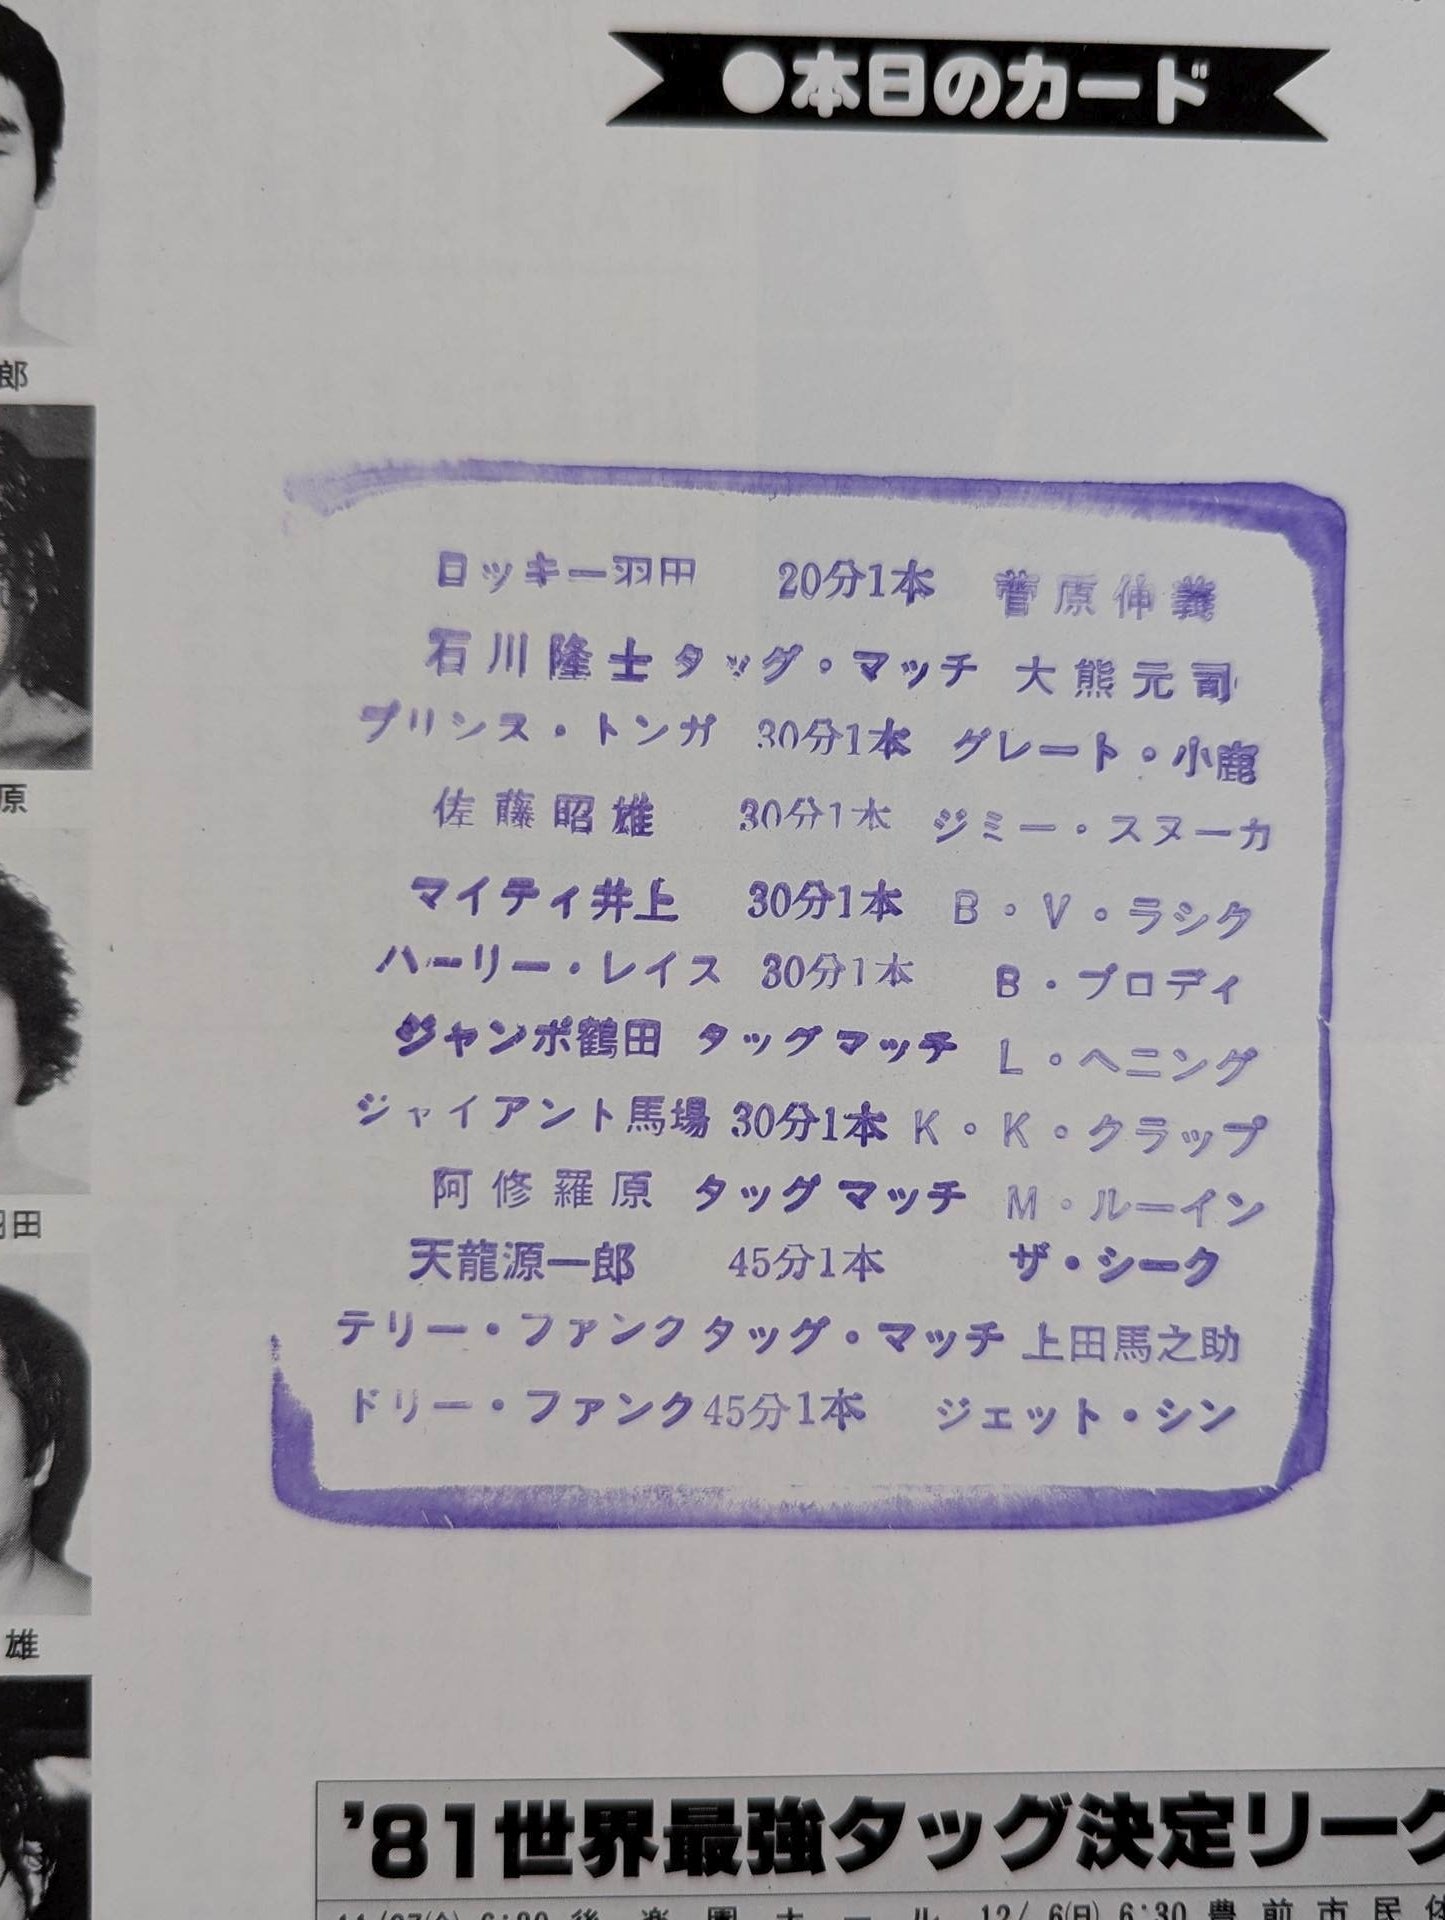 ●本日のカード
郎
原
羽田
雄
ロッキー羽田 20分1本 菅原伸義
石川隆士 タッグ・マッチ 大熊元司
プリンス・トンガ 30分1本 グレート・小鹿
佐藤昭雄 30分1本 ジミー・スヌーカ
マイティ井上 30分1本 B・V・ラシク
ハーリー・レイス 30分1本 B・ブロディ
ジャンボ鶴田 タッグマッチ L・ヘニング
ジャイアント馬場 30分1本 K・K・クラップ
阿修羅原 タッグマッチ M・ルーイン
天龍源一郎 45分1本 ザ・シーク
テリー・ファンク タッグ・マッチ 上田馬之助
ドリー・ファンク 45分1本 ジェット・シン
'81世界最強タッグ決定リーグ
11/27(金) 6:30 後楽園ホール 12/6(日) 6:30 豊前市民体